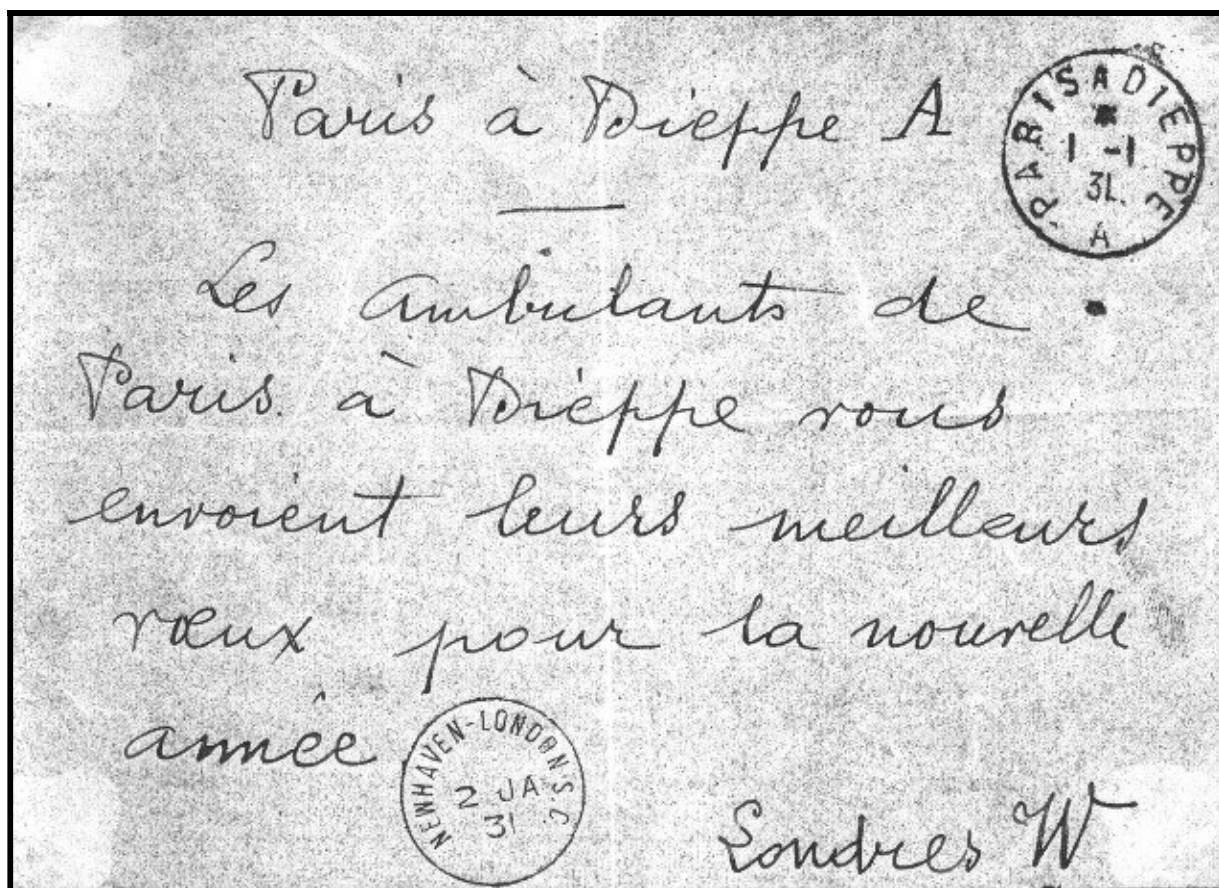 Paris à Dieppe A
PARIS A DIEPPE
1 -1
31
A
Les ambulants de
Paris à Dieppe vous
envoient leurs meilleurs
vœux pour la nouvelle
année
NEWHAVEN-LONDON S.C.
2 JA
31
Londres W